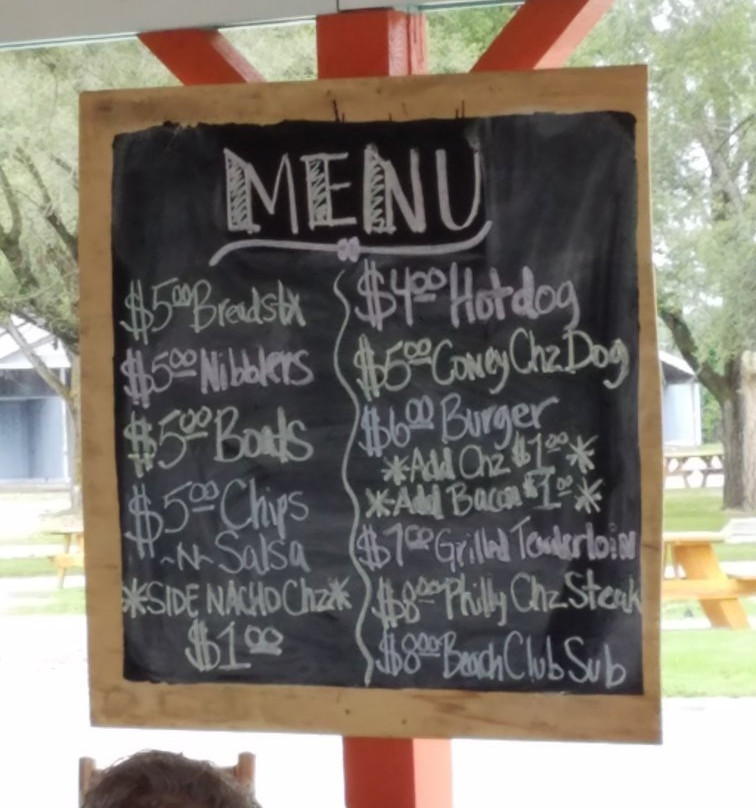 MENU
$5.00 Breadstx
$5.00 Nibblers
$5.00 Boats
$5.00 Chips
~N~ Salsa
*SIDE NACHO Chz*
$1.00
$4.00 Hotdog
$5.00 Coney Chz Dog
$6.00 Burger
*Add Chz $1.00*
*Add Bacon $1.00*
$7.00 Grilled Tenderloin
$8.00 Philly Chz Steak
$8.00 Beach Club Sub